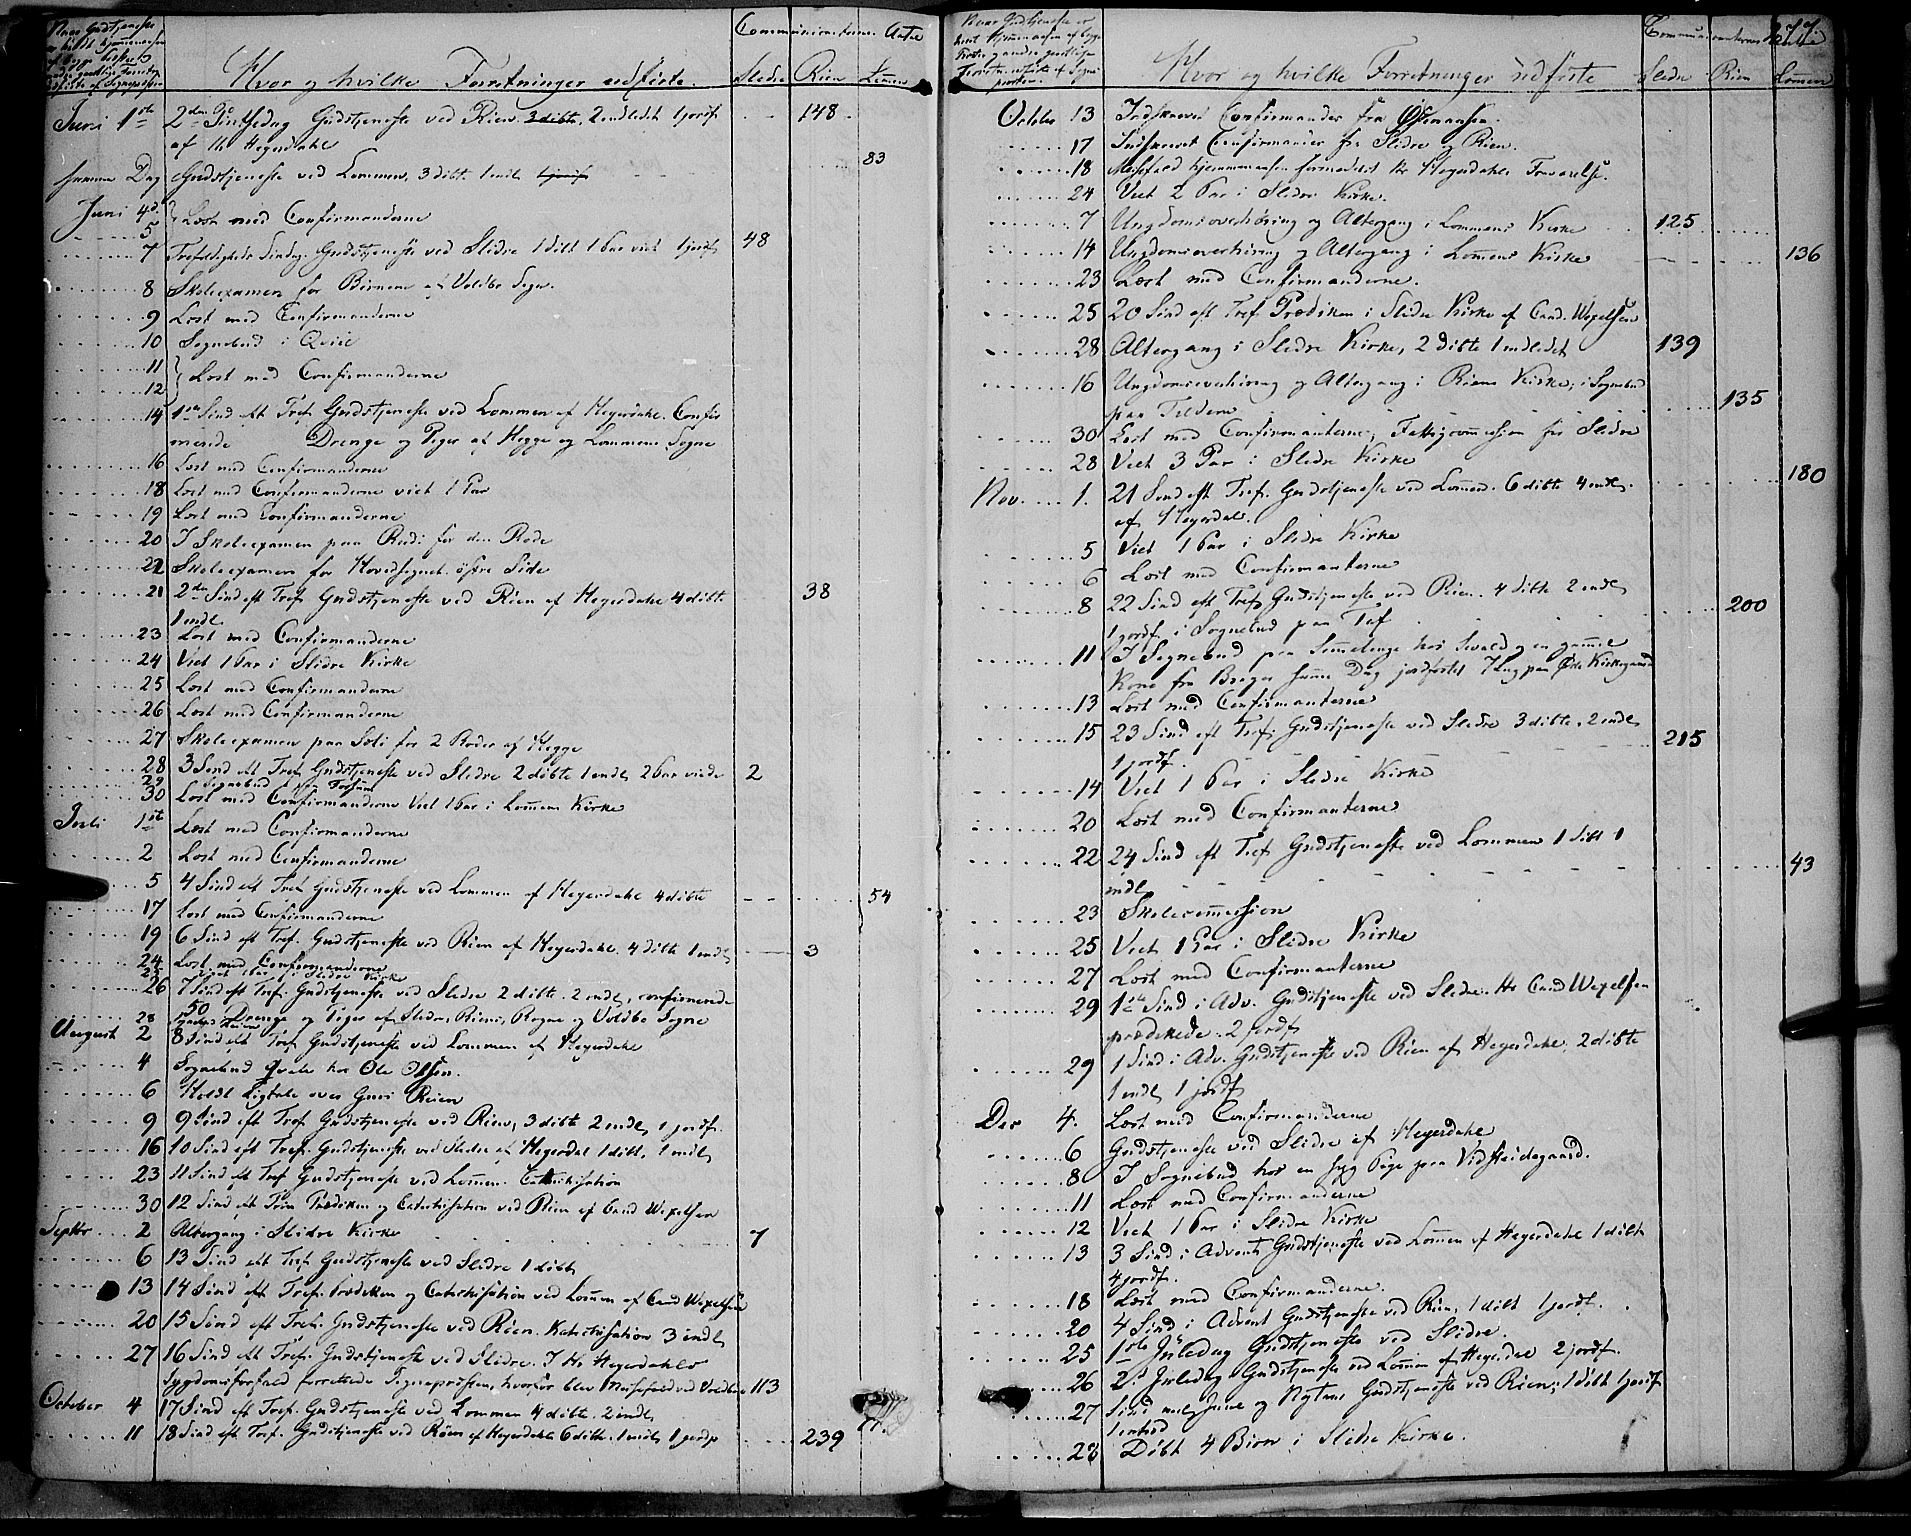 Hvor og hvilke Forretninger udførte.
Communicanternes Antal
Slidre Rien Lomen
Juni 1ste 2den Pintsedag Gudstjeneste ved Rien 3 døbte, 2 indledet 1 jordf. 148
af Hr Hegerdahl
samme Dag Gudstjeneste ved Lommen, 3 døbt. 1 indl. 83
Juni 4de
5 Læst med Confirmanderne
7 Trefoldigheds Søndag. Gudstjeneste ved Slidre 1 døbt 1 Par viet 1 jordf. 48
8 Skoleexamen for Børnene af Voldbo Sogn.
9 Læst med Confirmanderne
10 Sognebud i Qvie
11
12 Læst med Confirmanderne
14 1ste Sønd eft Tref. Gudstjeneste ved Lommen af Hegerdahl. Confir
merede Drenge og Piger af Hegge og Lommens Sogne
16 Læst med Confirmanderne
18 Læst med Confirmanderne viet 1 Par
19 Læst med Confirmanderne
20 I Skoleexamen paa for den Rode
22 Skoleexamen for Hovedsognet østre Side
21 2den Sønd eft Tref. Gudstjeneste ved Rien af Hegerdahl 4 døbte 38
1 indl.
23 Læst med Confirmanderne
24 Viet 1 Par i Slidre Kirke
25 Læst med Confirmanderne
26 Læst med Confirmanderne
27 Skoleexamen paa for 2 Roder af Hegge
28 3 Sønd eft Tref. Gudstjeneste ved Slidre 2 døbte 1 indl. 2 Par viede 2
29 Sognebud
30 Læst med Confirmanderne Viet 1 Par i Lommens Kirke
Juli 1ste Læst med Confirmanderne
2 Læst med Confirmanderne
5 4 Sønd eft Tref. Gudstjeneste ved Lommen af Hegerdahl 4 døbte 54
17 Læst med Confirmanderne
19 6 Sønd eft Tref. Gudstjeneste ved Rien af Hegerdahl. 4 døbte 1 indl. 3
24 Læst med Confirmanderne
25 Viet 1 Par i Slidre Kirke
26 7 Sønd eft Tref. Gudstjeneste ved Slidre 2 døbte. 2 indl., confirmerede
50 Drenge og Piger af Slidre, Riens, Rogne og Voldbo Sogne
28
August 2 8 Sønd eft Tref. Gudstjeneste ved Lommen af Hegerdahl
4 Sognebud Qvale hos Ole Olsen.
6 Holdt Ligtale over Guri Reien
9 9 Sønd eft Tref. Gudstjeneste ved Rien, 3 døbte 2 indl. 1 jordf.
16 10 Sønd eft Tref. Gudstjeneste ved Slidre af Hegerdal 1 døbt. 1 indl.
23 11 Sønd eft Tref. Gudstjeneste ved Lommen. Catechisation
30 12 Sønd eft Trin Prædiken og Catechisation ved Rien af Cand Wexelsen
Septbr 2 Altergang i Slidre Kirke 7
6 13 Sønd eft Tref Gudstjeneste ved Slidre 1 døbt
13 14 Sønd eft Tref. Prædiken og Catechisation ved Lommen af Cand Wexelsen
20 15 Sønd eft Tref. Gudstjeneste ved Rien. Katechisation 3 indl.
27 16 Sønd eft Tref. Gudstjeneste ved Slidre. I Hr Hegerdahls
Sygdomsforfald forrettede Sognepræsten, hvorfor blev Messefald ved Voldboe 113
October 4 17 Sønd eft Tref. Gudstjeneste ved Lommen 4 døbte. 2 indl.
11 18 Sønd eft Tref. Gudstjeneste ved Rien af Hegerdahl 6 døbte. 1 indl. 1 jordf. 239
277.
Hvor og hvilke Forretninger udførte
Slidre Rien Lommen
October 13 Indskrevet Confirmander fra
17 Indskrevet Confirmander fra Slidre og Rien.
18 Messefald Hr Hegerdahls Fraværelse.
24 Viet 2 Par i Slidre Kirke.
7 Ungdomsoverhøring og Altergang i Lommens Kirke 125
14 Ungdomsoverhøring og Altergang i Lommens Kirke 136
23 Læst med Confirmanderne.
25 20 Sønd eft Tref. Prædiken i Slidre Kirke af Cand. Wexelsen
28 Altergang i Slidre Kirke, 2 døbte 1 indledet 139
16 Ungdomsoverhøring og Altergang i Riens Kirke; i Sognebud
paa 135
30 Læst med Confirmanterne, Fattigcommission for Slidre
28 Viet 3 Par i Slidre Kirke
Nov. 1. 21 Sønd eft Tref. Gudstjeneste ved Lommen. 6 døbte 4 indl. 180
af Hegerdal.
5 Viet 1 Par i Slidre Kirke
6 Læst med Confirmanterne
8 22 Sønd eft Tref. Gudstjeneste ved Rien. 4 døbte 2 indl. 200
1 jordf. i Sognebud paa
11 I Sognebud paa hos og en gammel
Kone fra samme Dag jordfæstet 7 Lig paa Kirkegaard
13 Læst med Confirmanterne
15 23 Sønd eft Tref. Gudstjeneste ved Slidre 3 døbte. 2 indl. 215
1 jordf.
14 Viet 1 Par i Slidre Kirke
20 Læst med Confirmanterne
22 24 Sønd eft Tref. Gudstjeneste ved Lommen 1 døbt 1 43
indl.
23 Skolecommission
25 Viet 1 Par i Slidre Kirke
27 Læst med Confirmanterne
29 1ste Sønd i Adv. Gudstjeneste ved Slidre. Hr Cand Wexelsen
prædikede. 2 jordf.
29 1 Sønd i Adv. Gudstjeneste ved Rien af Hegerdahl, 2 døbte
1 indl. 1 jordf.
Dec 4. Læst med Confirmanderne
6 Gudstjeneste ved Slidre af Hegerdahl
8 I Sognebud hos en syg Pige paa
11 Læst med Confirmanderne
12 Viet 1 Par i Slidre Kirke
13 3 Sønd i Advent Gudstjeneste ved Lommen af Hegerdahl 1 døbt
4 jordf.
18 Læst med Confirmanderne.
20 4 Sønd i Advent Gudstjeneste ved Rien, 1 døbt 1 jordf.
25 1ste Juledag Gudstjeneste ved Slidre.
26 2d Juledag Gudstjeneste ved Lommen af Hegerdal 2 jordf.
27 Sønd mel. Juul og Nytaar Gudstjeneste ved Rien; 1 døbt 1 jordf
28 Døbt 4 Børn i Slidre Kirke.